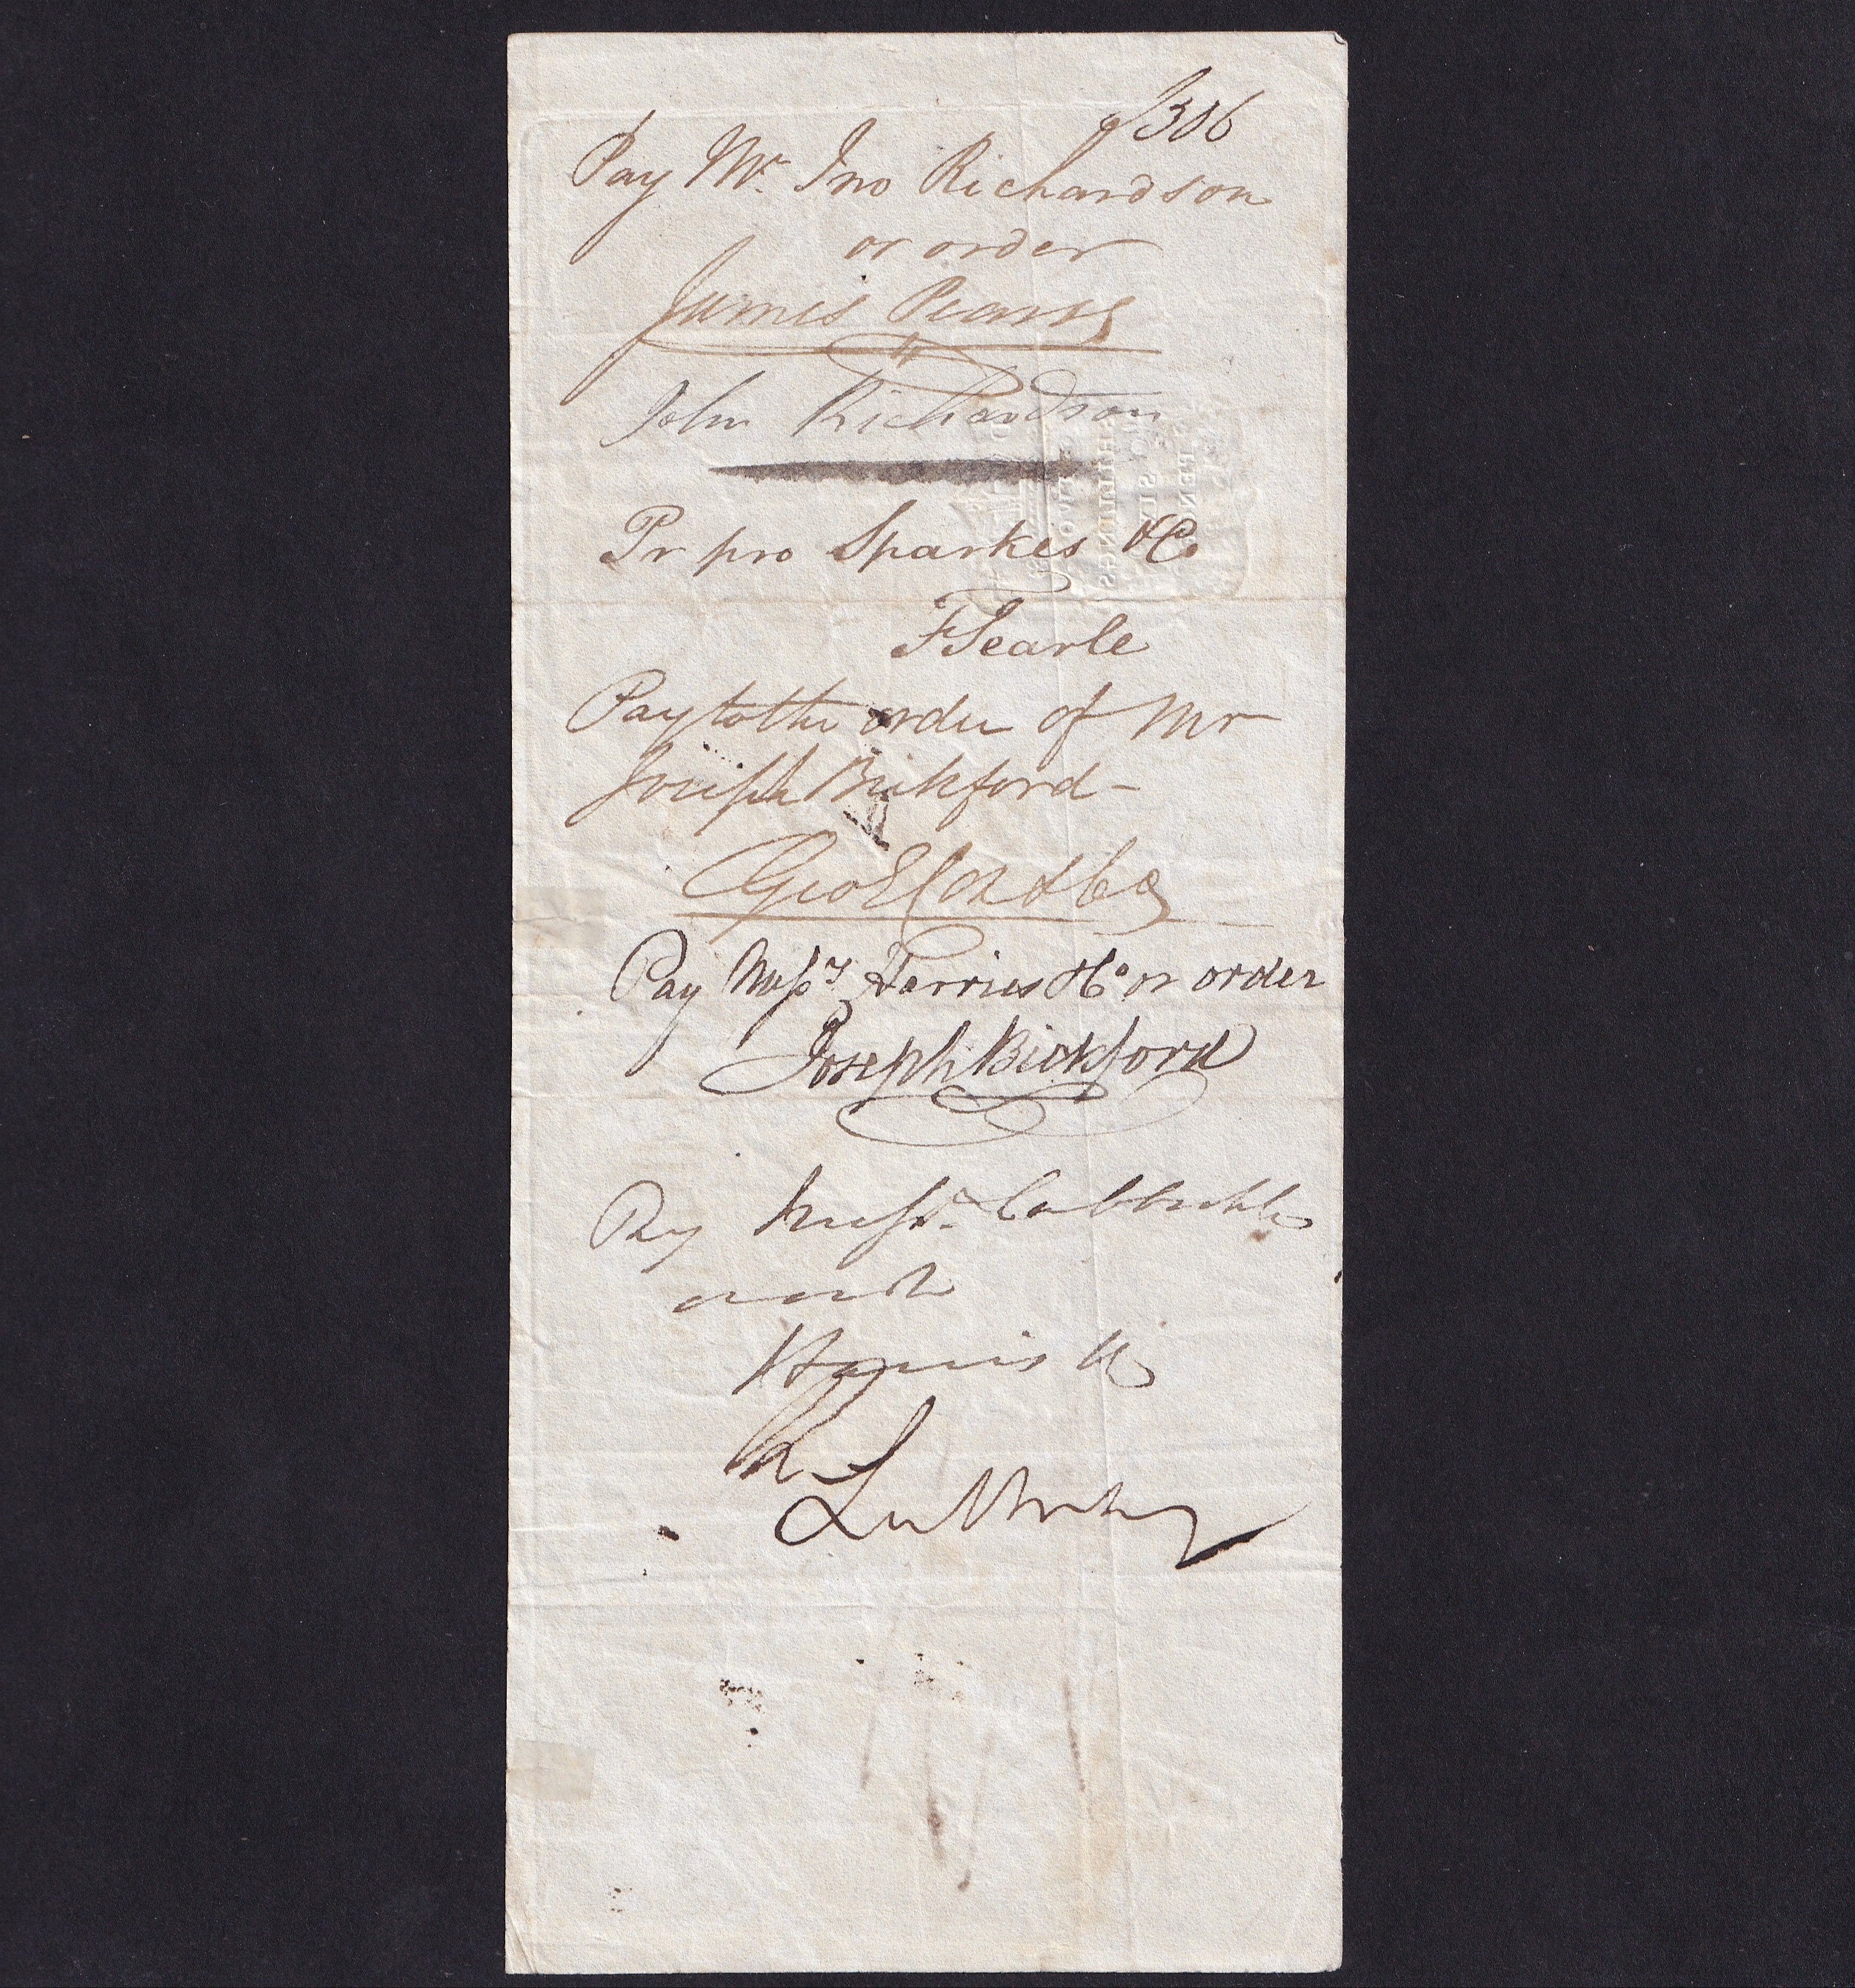 306
Pay Mr. Jno Richardson
or order
James Pearse
John Richardson
Pr pro Sparkes & Co
F Searle
Pay to the order of Mr
Joseph Bickford -
Geo & Co
Pay Messrs Harris & Co or order
Joseph Bickford
Pay Messrs
or order
Harris & Co